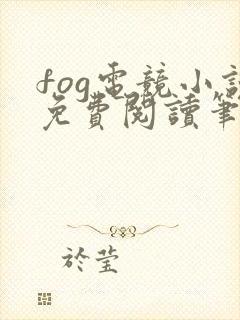 fog電競小說
免費閱讀筆
於瑩